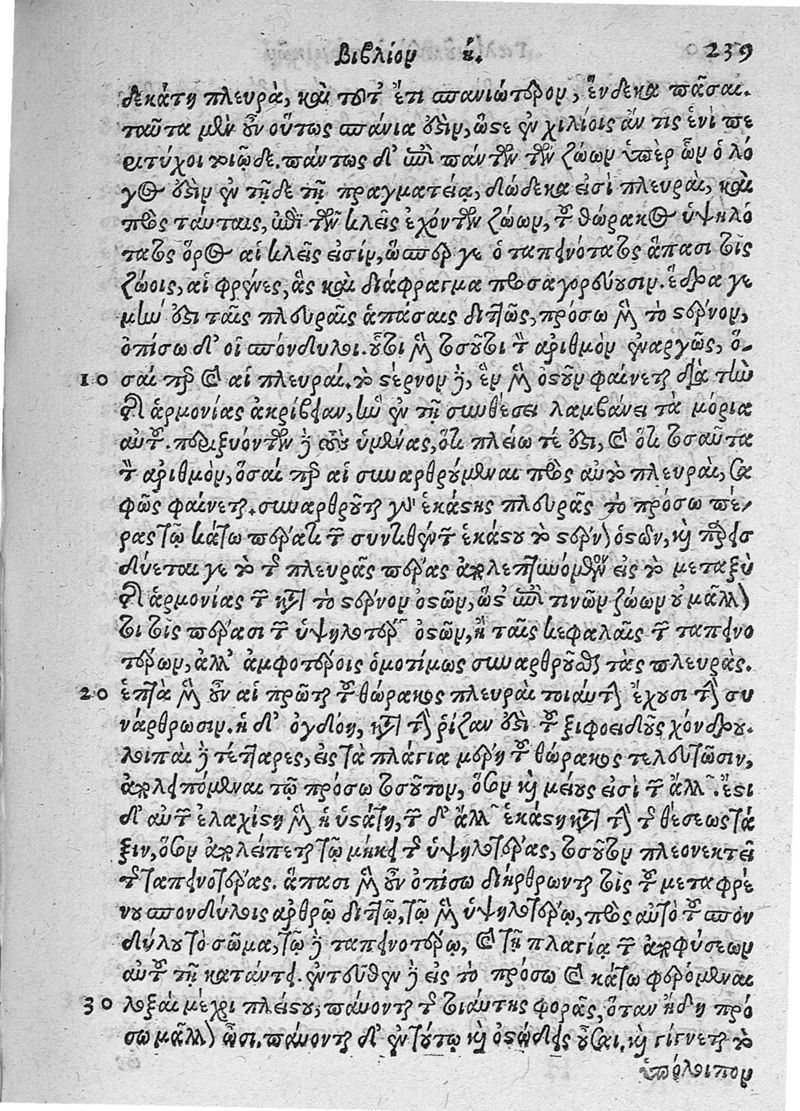 Βιβλίον η. 239
δεκάτη πλευρὰ, καὶ τούτου ἔτι σπανιώτερον, ἕνδεκα πᾶσαι.
ταῦτα μὲν οὖν οὕτως σπάνια ἐστὶν, ὥστε ἐν χιλίοις ἄν τις ἑνὶ πε
ριτύχοι τοιῷδε. πάντως δ' ἐπὶ πάντων τῶν ζώων ὑπὲρ ὧν ὁ λό
γος ἐστὶν ἐν τῇδε τῇ πραγματείᾳ, δώδεκα εἰσὶ πλευραὶ, καὶ
πρὸς ταύταις, ἐπὶ τῶν κλεῖς ἐχόντων ζώων, τοῦ θώρακος ὑψηλό
τατος ὅρος αἱ κλεῖς εἰσὶν, ὥσπερ γε ὁ ταπεινότατος ἅπασι τοῖς
ζώοις, αἱ φρένες, ἃς καὶ διάφραγμα προσαγορεύουσιν. ἕδρα γε
μὴν ἐστι ταῖς πλευραῖς ἁπάσαις διττῶς, πρόσω μὲν τὸ στέρνον,
ὀπίσω δ' οἱ σπόνδυλοι. οὗτοι μὲν τοσοῦτοι τὸν ἀριθμὸν ἐναργῶς, ὅ-
10 σαι περ καὶ αἱ πλευραί. τὸ στέρνον δὲ, ἓν μὲν ὀστοῦν φαίνεται διὰ τὴν
τῆς ἁρμονίας ἀκρίβειαν, ἣν ἐν τῇ συνθέσει λαμβάνει τὰ μόρια
αὐτοῦ. περιξυόντων δὲ τοὺς ὑμένας, ὅτι πλείω τέ ἐστι, καὶ ὅτι τοσαῦτα
τὸν ἀριθμὸν, ὅσαι περ αἱ συναρθρούμεναι πρὸς αὐτὸ πλευραὶ, σα
φῶς φαίνεται. συναρθροῦται γὰρ ἑκάστης πλευρᾶς τὸ πρόσω πέ-
ρας τῷ κάτω πέρατι τῶν συντιθέντων ἑκάστου τὸ στέρνον ὀστῶν, καὶ παρεισ
δύεται γε τὸ τῆς πλευρᾶς πέρας ἀπολεπτυνόμενον εἰς τὸ μεταξὺ
τῆς ἁρμονίας τῶν κατὰ τὸ στέρνον ὀστῶν, ὡς ἐπὶ τινῶν ζώων οὐ μᾶλλόν
τι τοῖς πέρασι τῶν ὑψηλοτέρων ὀστῶν, ἢ ταῖς κεφαλαῖς τῶν ταπεινο
τέρων, ἀλλ' ἀμφοτέροις ὁμοτίμως συναρθροῦσθαι τὰς πλευράς.
20 ἑπτὰ μὲν οὖν αἱ πρῶται τοῦ θώρακος πλευραὶ τοιαύτην ἔχουσι τὴν συ
νάρθρωσιν. ἡ δ' ὀγδόη, κατὰ τὴν ῥίζαν ἐστὶ τοῦ ξιφοειδοῦς χόνδρου.
λοιπαὶ δὲ τέτταρες, εἰς τὰ πλάγια μέρη τοῦ θώρακος τελευτῶσιν,
ἀπολειπόμεναι τῷ πρόσω τοσοῦτον, ὅσον καὶ μείους εἰσὶ τῶν ἄλλων. ἔστι
δ' αὐτῶν ἐλαχίστη μὲν ἡ ὑστάτη, τῶν δ' ἄλλων ἑκάστη κατὰ τὴν τῆς θέσεως τά
ξιν, ὅσον ἀπολείπεται τῷ μήκει τῆς ὑψηλοτέρας, τοσοῦτον πλεονεκτεῖ
τῆς ταπεινοτέρας. ἅπασι μὲν οὖν ὀπίσω διήρθρωνται τοῖς τοῦ μεταφρέ
νου σπονδύλοις ἄρθρῳ διττῷ, τῷ μὲν ὑψηλοτέρῳ, πρὸς αὐτὸ τοῦ σπον
δύλου τὸ σῶμα, τῷ δὲ ταπεινοτέρῳ, καὶ τῇ πλαγίᾳ τῶν ἀποφύσεων
αὐτοῦ τῇ κατάντει. ἐντεῦθεν δὲ εἰς τὸ πρόσω καὶ κάτω φερόμεναι
30 λοξαὶ μέχρι πλείστου, παύονται τῆς τοιαύτης φορᾶς, ὅταν ἤδη πρό
σω μᾶλλον ὦσι. παύονται δ' ἐν τούτῳ καὶ ὀστώδεις οὖσαι, καὶ γίγνεται τὸ
ὑπόλοιπον